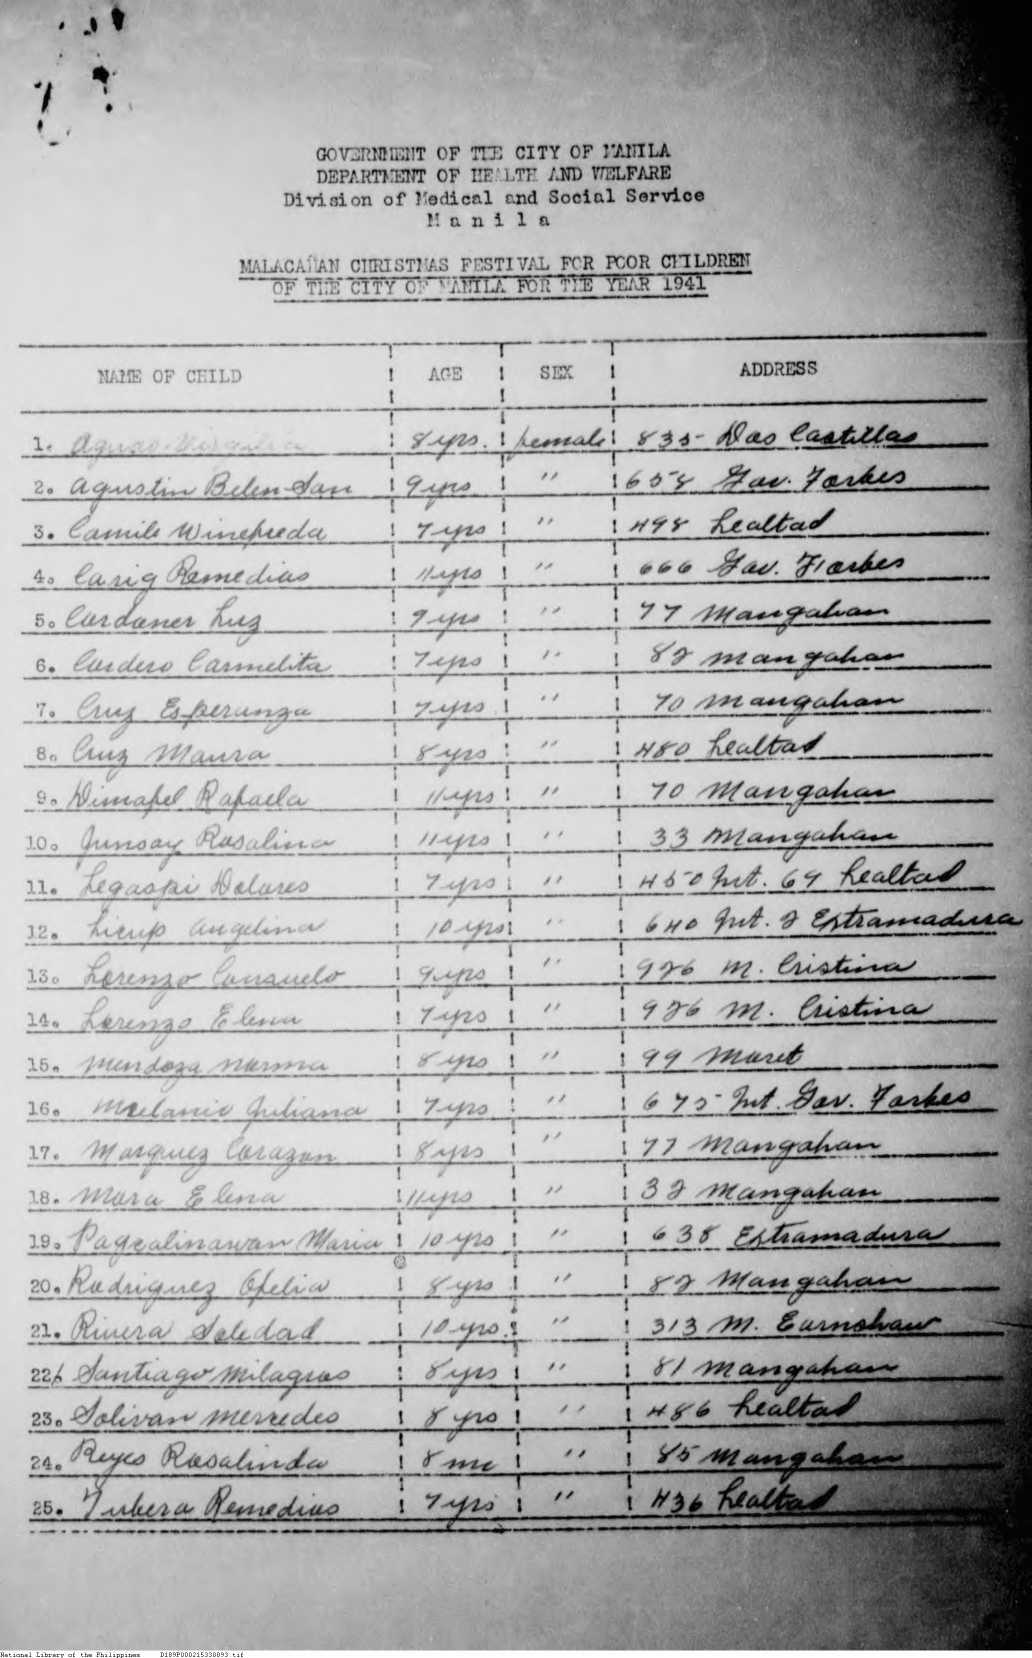 GOVERNMENT OF THE CITY OF MANILA
DEPARTMENT OF HEALTH AND WELFARE
Division of Medical and Social Service
M a n i l a
MALACAÑAN CHRISTMAS FESTIVAL FOR POOR CHILDREN
OF THE CITY OF MANILA FOR THE YEAR 1941
NAME OF CHILD AGE SEX ADDRESS
1. Aguas 8 yrs. female 835 Dos Castillas
2. Agustin Belen San 9 yrs " 658 Gov. Forbes
3. Camilo Winefreda 7 yrs " 498 Lealtad
4. Carig Remedios 11 yrs " 666 Gov. Forbes
5. Cordaner Luz 9 yrs " 77 Mangahan
6. Cordero Carmelita 7 yrs " 82 Mangahan
7. Cruz Esperanza 7 yrs " 70 Mangahan
8. Cruz Maura 8 yrs " 480 Lealtad
9. Dimapel Rafaela 11 yrs " 70 Mangahan
10. Junsay Rosalina 11 yrs " 33 Mangahan
11. Legaspi Dolores 7 yrs " 450 Int. 69 Lealtad
12. Licup Angelina 10 yrs " 640 Int. 2 Extramadura
13. Lorenzo Consuelo 9 yrs " 926 M. Cristina
14. Lorenzo Elena 7 yrs " 926 M. Cristina
15. Mendoza Norma 8 yrs " 99 Moret
16. Melanio Juliana 7 yrs " 675 Int. Gov. Forbes
17. Marquez Corazon 8 yrs " 77 Mangahan
18. Mora Elena 11 yrs " 32 Mangahan
19. Pagcalinawan Maria 10 yrs " 638 Extramadura
20. Rodriguez Ofelia 8 yrs " 82 Mangahan
21. Rivera Soledad 10 yrs. " 313 M. Earnshaw
22. Santiago Milagros 8 yrs " 81 Mangahan
23. Solivan Mercedes 8 yrs " 486 Lealtad
24. Reyes Rosalinda 8 " 85 Mangahan
25. Tubera Remedios 7 yrs " 436 Lealtad
National Library of the Philippines D189P000215338893.tif